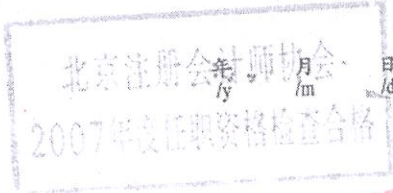 北京注册会计师协会
年 月 日
/y /m /d
2007年度任职资格检查合格